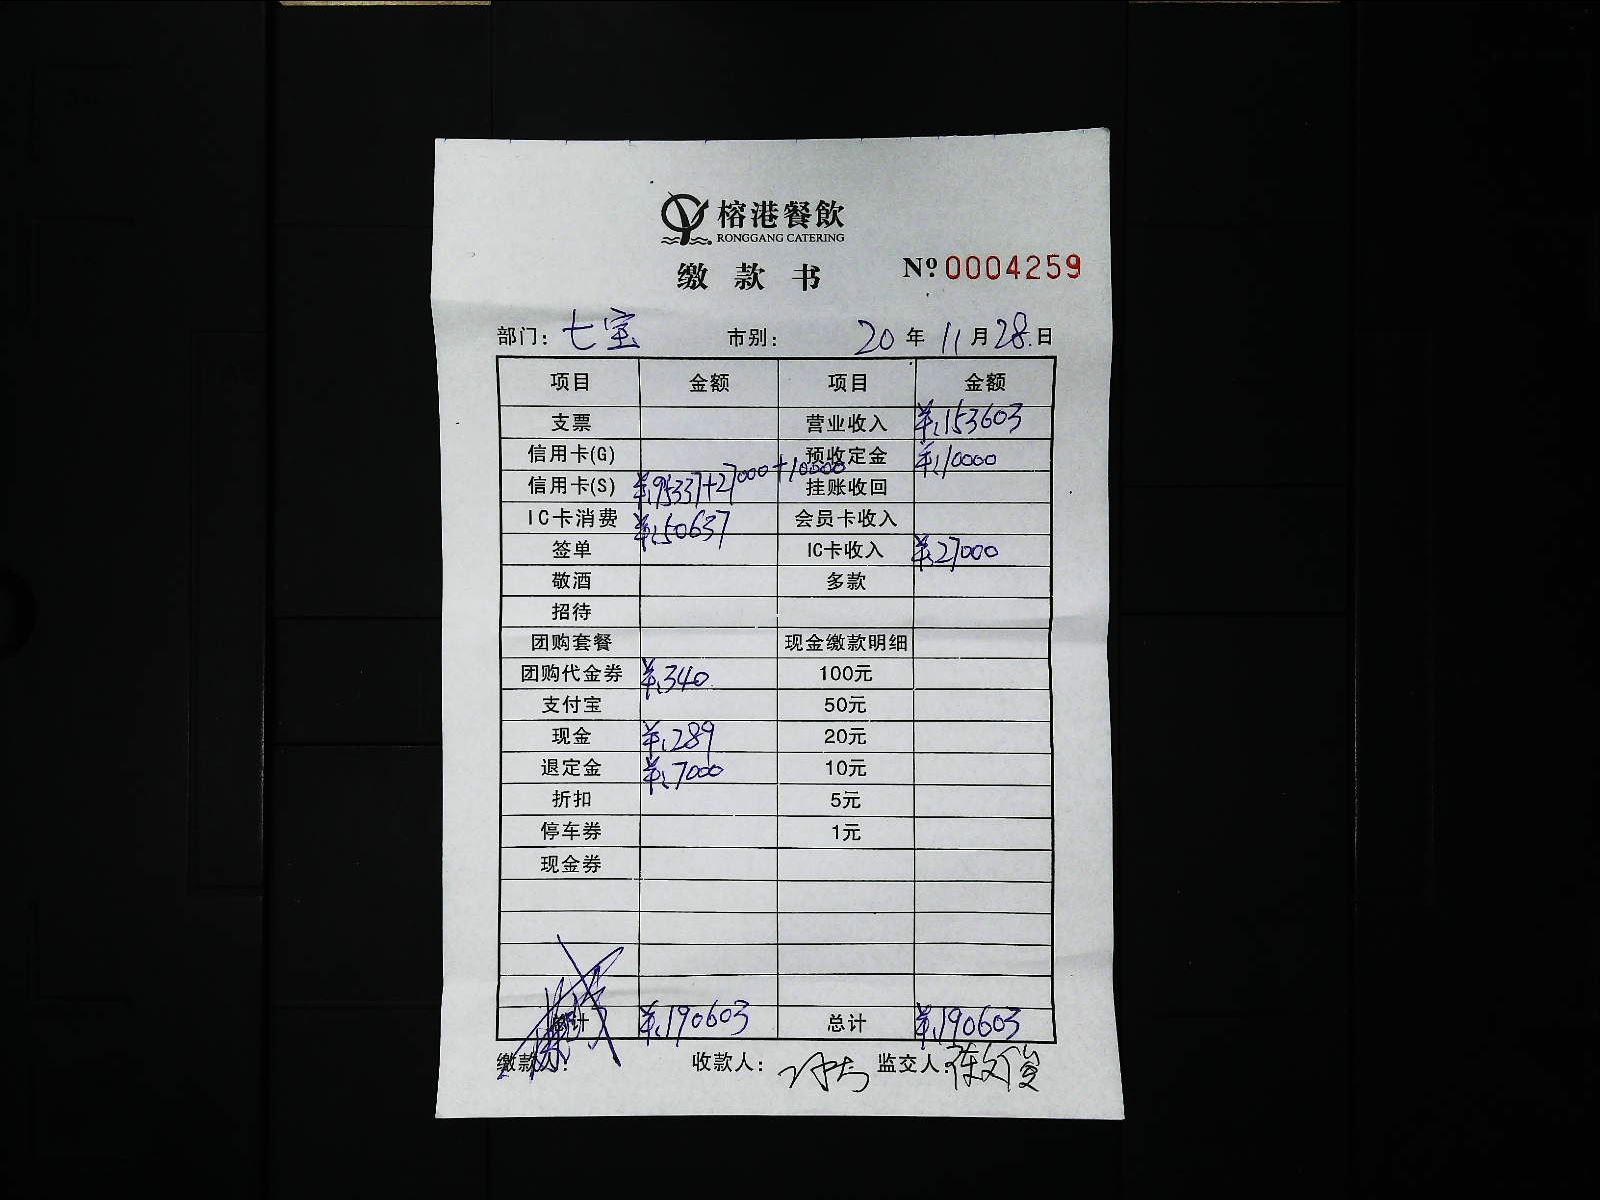 榕港餐飲
RONGGANG CATERING
缴款书 Nº 0004259
部门: 七宝 市别: 20年11月28日
项目 金额 项目 金额
支票 营业收入 ¥153603
信用卡(G) 预收定金 ¥10000
信用卡(S) ¥95337+27000+10000 挂账收回
IC卡消费 ¥50637 会员卡收入
签单 IC卡收入 ¥27000
敬酒 多款
招待
团购套餐 现金缴款明细
团购代金券 ¥340 100元
支付宝 50元
现金 ¥289 20元
退定金 ¥7000 10元
折扣 5元
停车券 1元
现金券
总计 ¥190603 总计 ¥190603
缴款人: 收款人: 监交人: